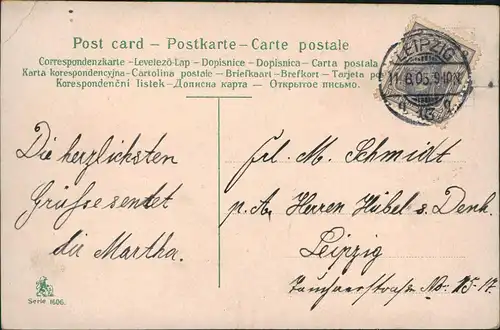 Post card – Postkarte – Carte postale
Correspondenzkarte - Levelező-Lap - Dopisnice - Dopisnica - Carta postala
Karta korespondencyjna - Cartolina postale - Briefkaart - Brefkort - Tarjeta po
Korespondenční listek - Дописна карта - Открытое письмо.
LEIPZIG
11.8.05.
13
Die herzlichsten
Grüsse sendet
dir Martha.
Frl. M. Schmidt
p. A. Herren Hübel & Denk
Leipzig
Tauchaerstrasse No. 15-17.
Serie 1606.